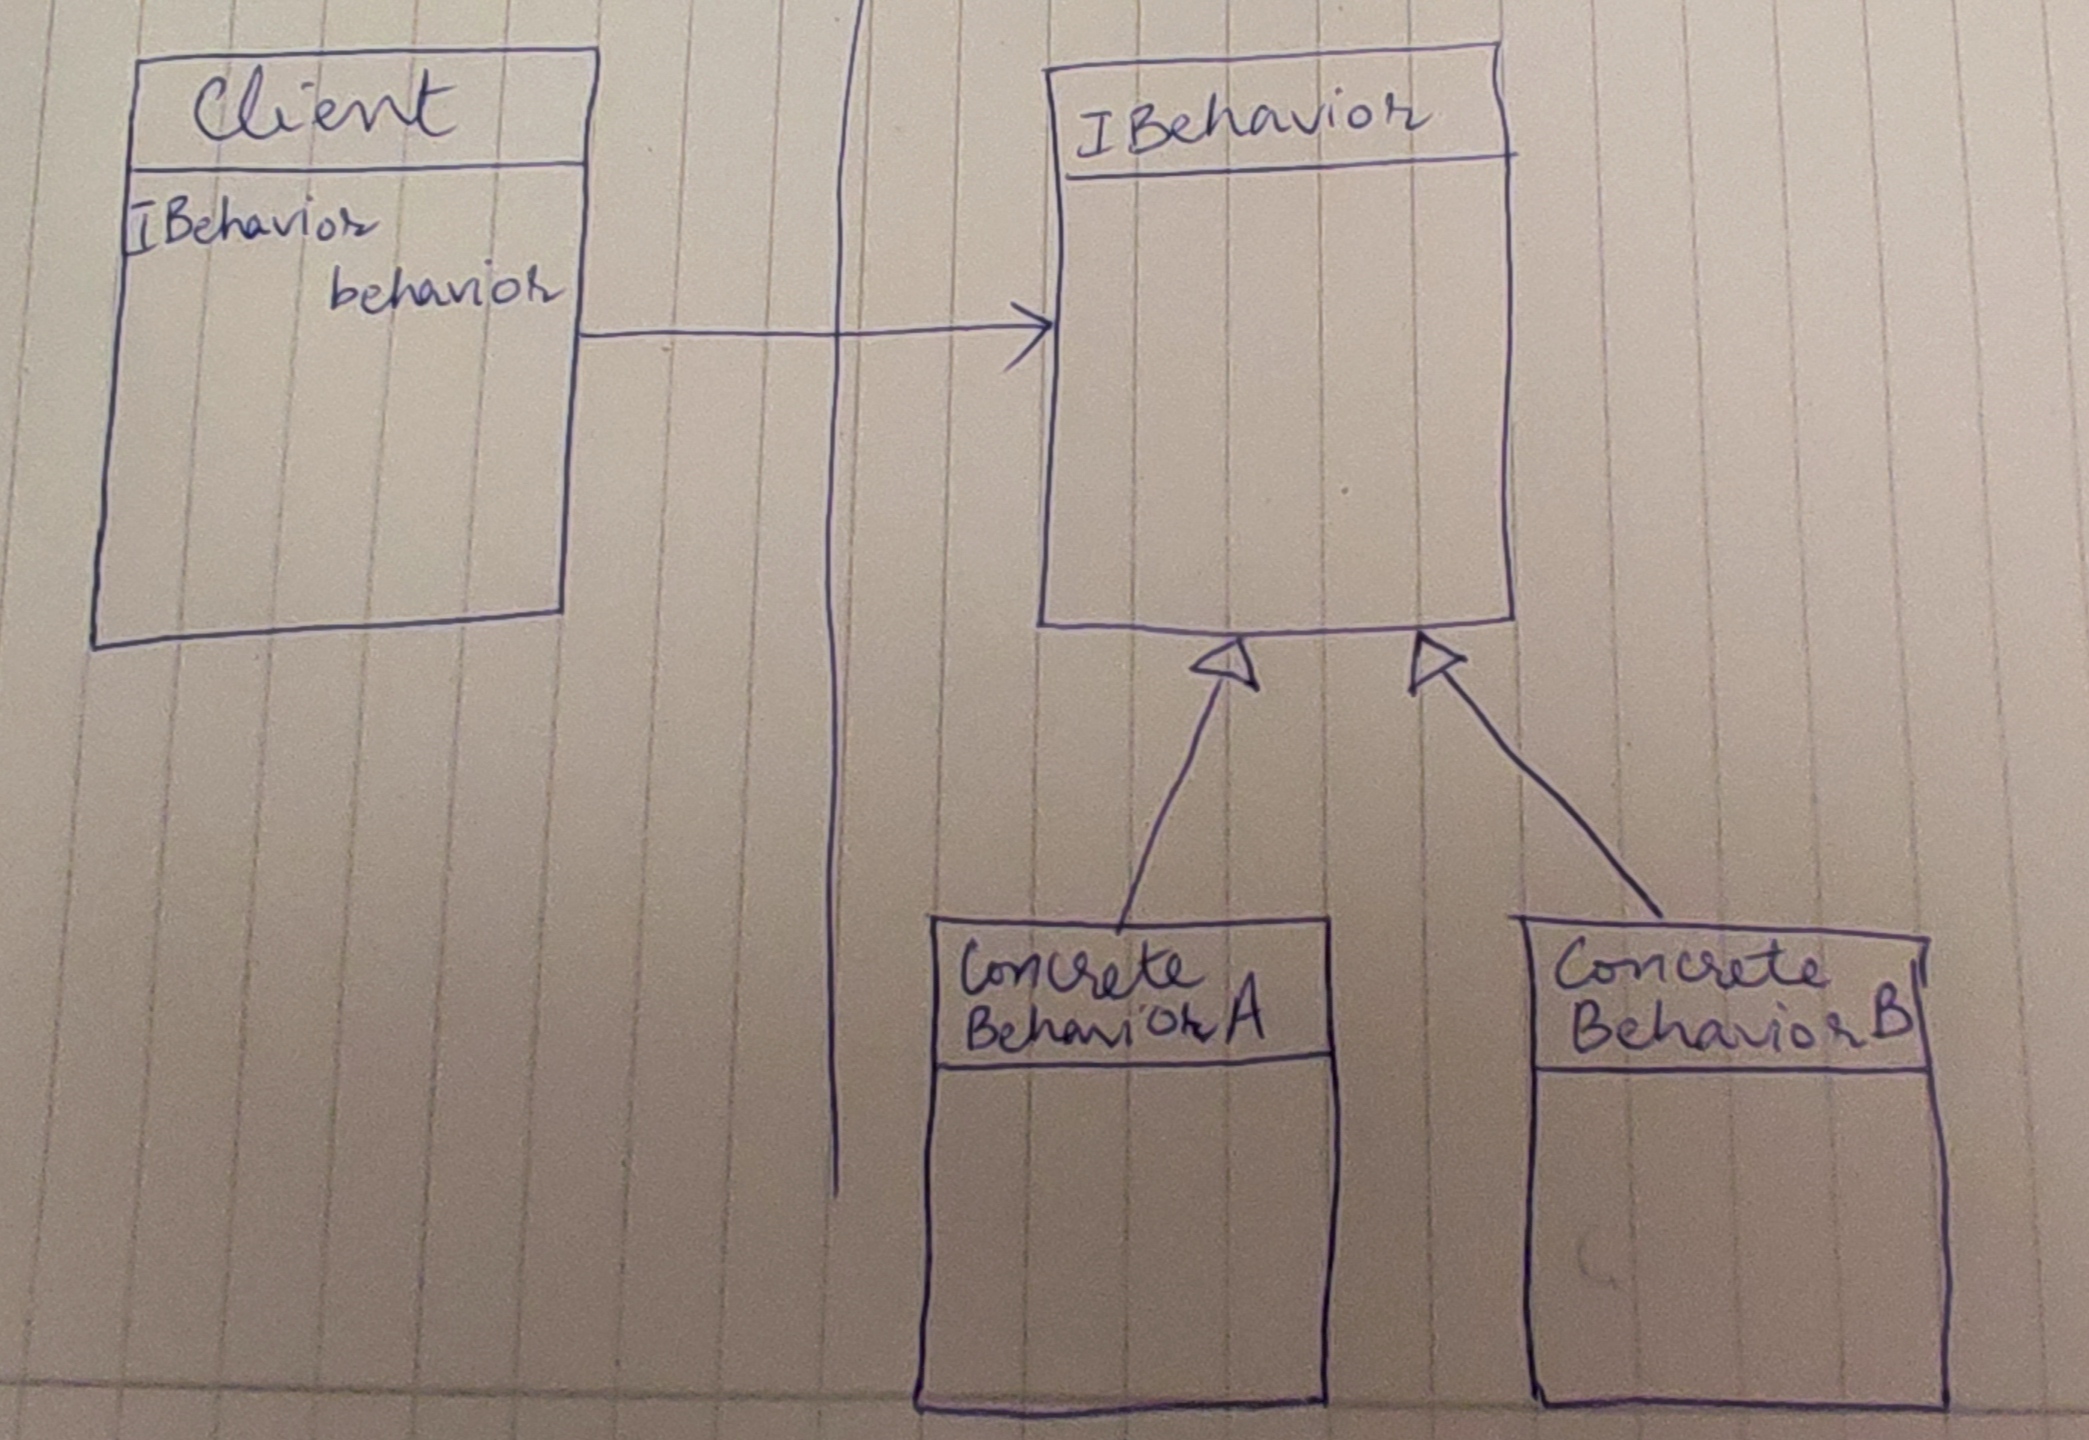 Client
IBehavior
behavior
IBehavior
Concrete
Behavior A
Concrete
Behavior B